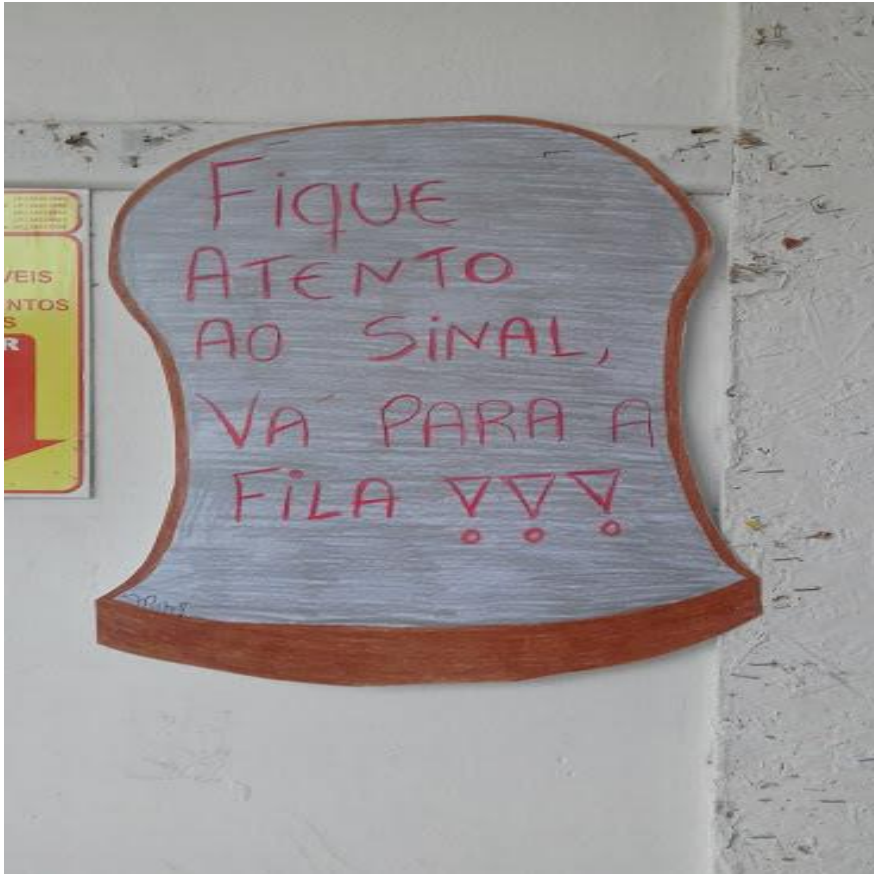 VEIS
NTOS
S
R
FiQUE
ATENTO
AO SiNAL,
VÁ PARA A
FiLA !!!